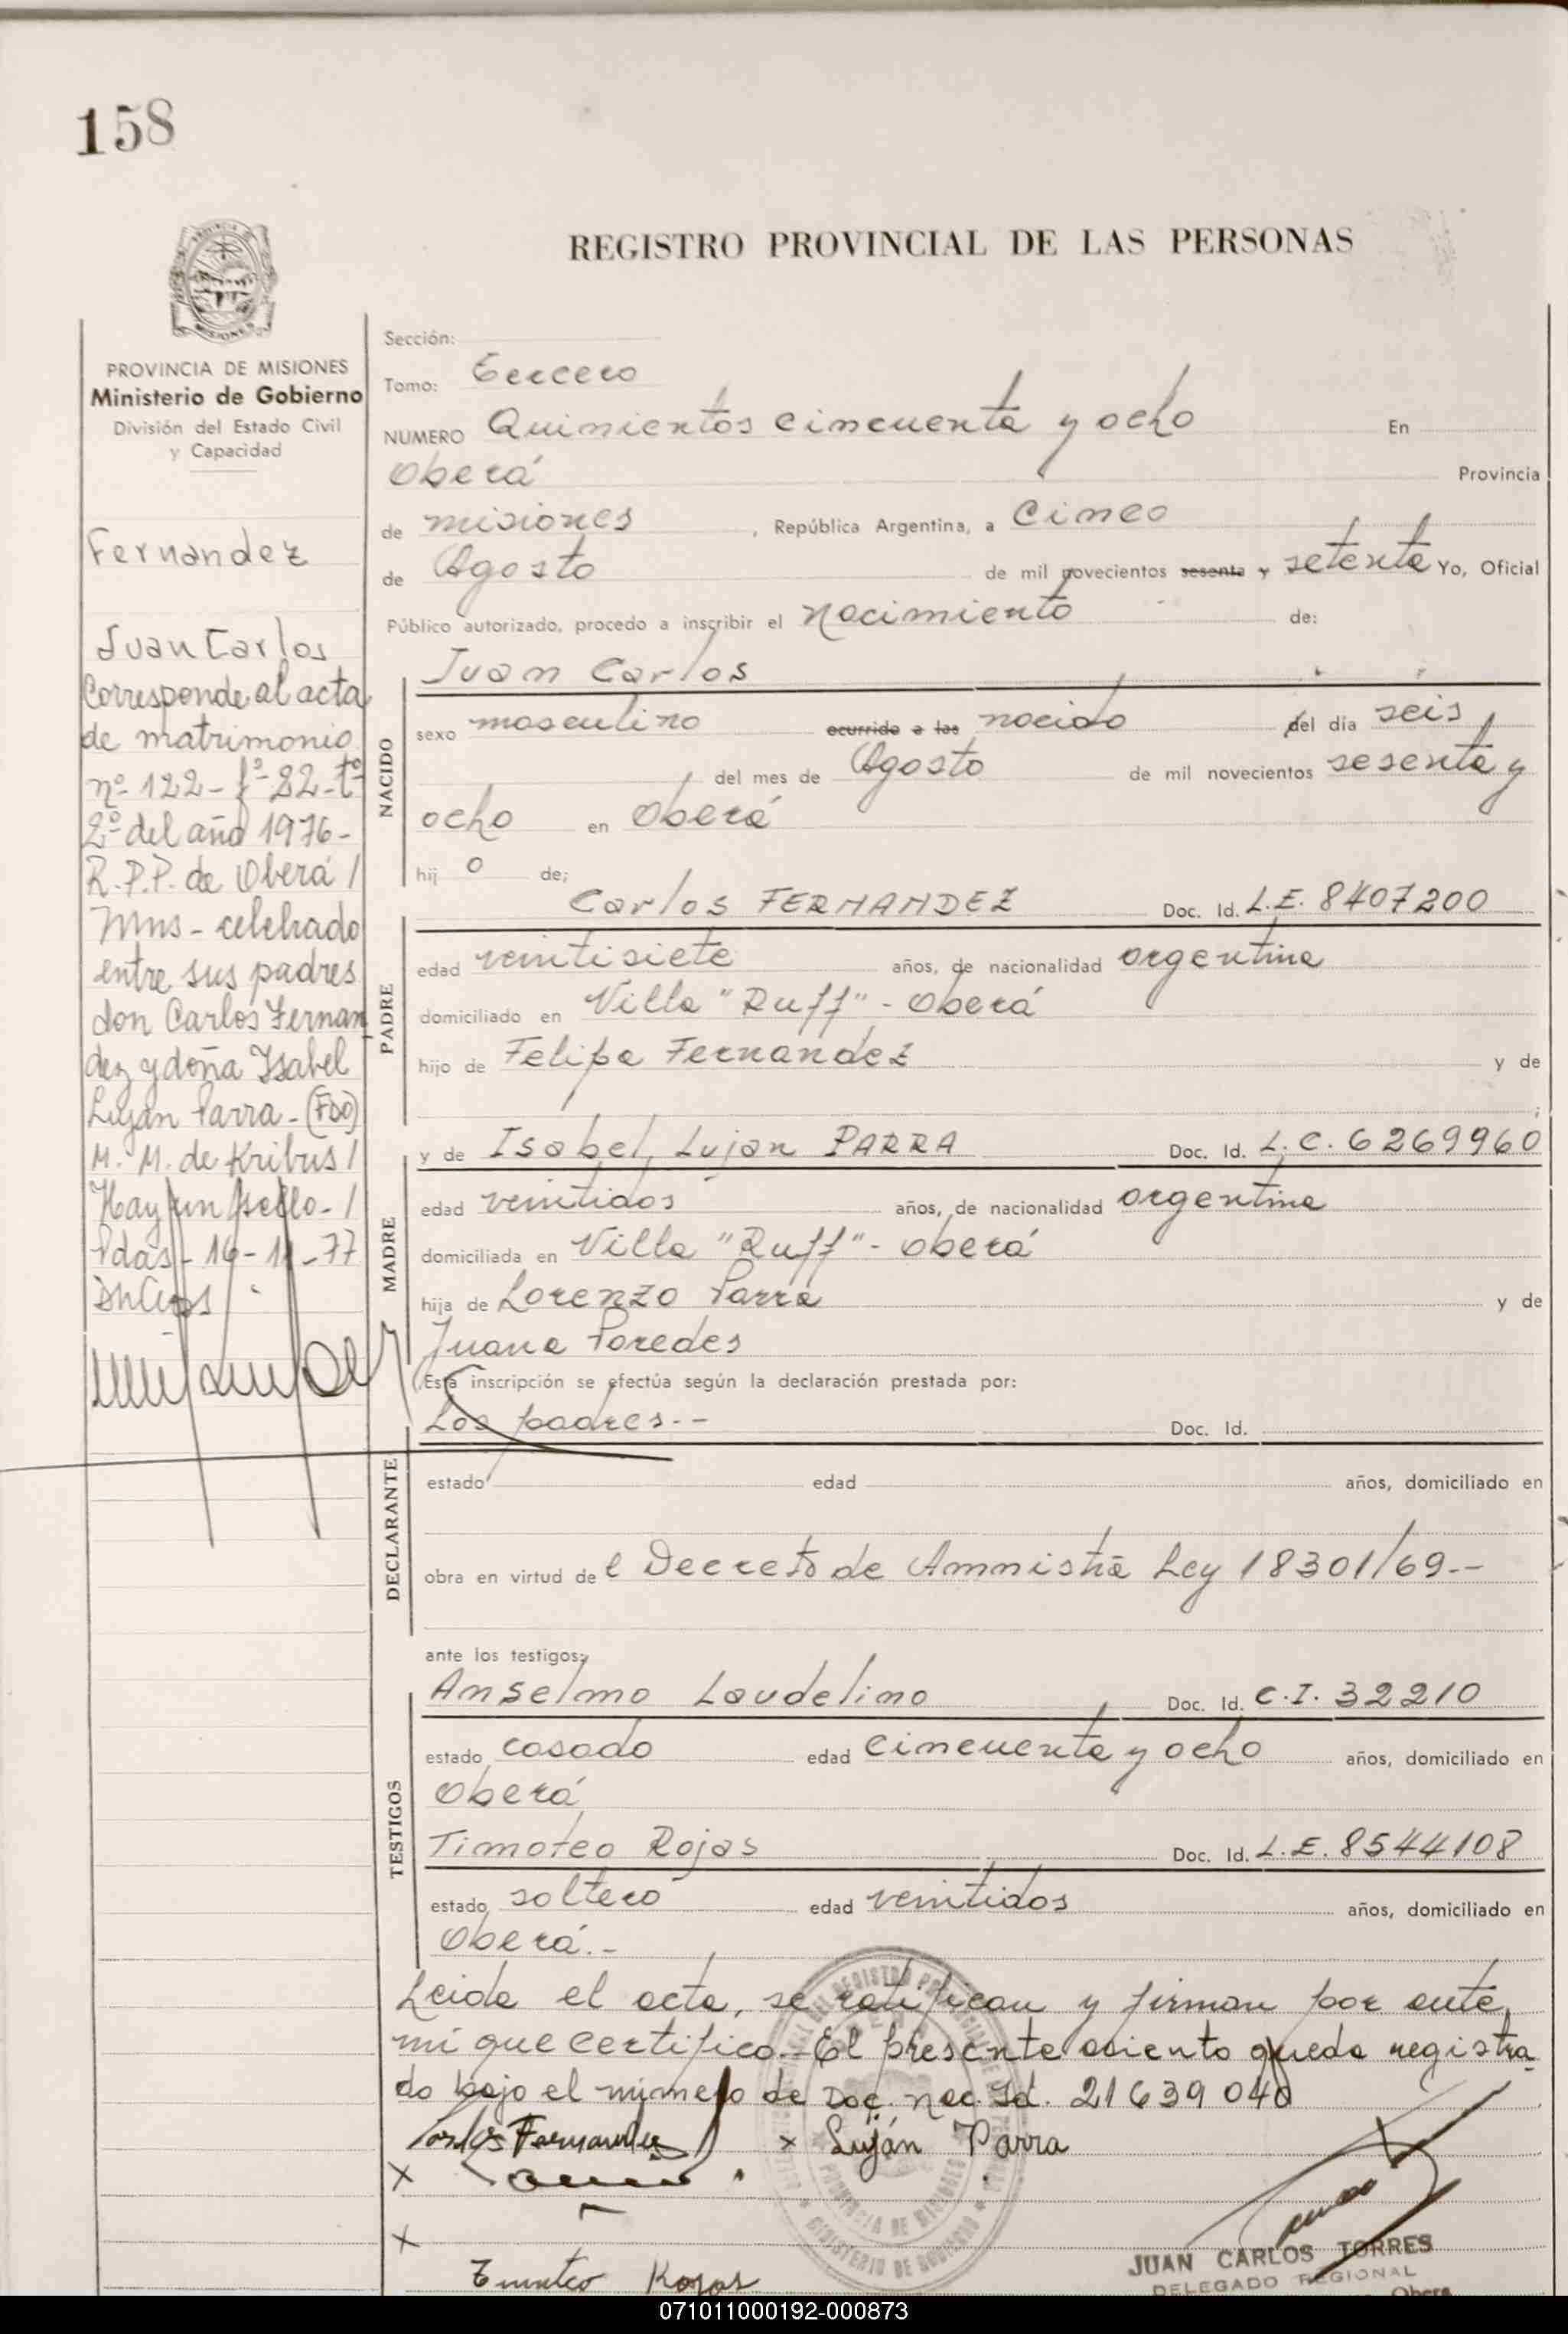 158
REGISTRO PROVINCIAL DE LAS PERSONAS
MISIONES
PROVINCIA DE MISIONES
Ministerio de Gobierno
División del Estado Civil
y Capacidad
Fernandez
Juan Carlos
Corresponde al acta
de matrimonio
nº 122 - fº 82 - tº
2º del año 1976 -
R.P.P. de Oberá /
Mns - celebrado
entre sus padres
don Carlos Fernan
dez y doña Isabel
Luján Parra - (FDO)
M. M. de Kribus /
Hay un sello - /
Pdas - 16 - 11 - 77
Sección:
Tomo: Tercero
NUMERO Quinientos cincuenta y ocho En
Oberá Provincia
de misiones, República Argentina, a Cinco
de Agosto de mil novecientos sesenta y setenta Yo, Oficial
Público autorizado, procedo a inscribir el nacimiento de:
Juan Carlos
NACIDO
sexo masculino ocurrido a las nacido del día seis
del mes de Agosto de mil novecientos sesenta y
ocho en Oberá
hij o de;
Carlos FERNANDEZ Doc. Id. L.E. 8407200
PADRE
edad veintisiete años, de nacionalidad argentina
domiciliado en Villa "Ruff" - Oberá
hijo de Felipa Fernandez y de
y de Isabel Lujan PARRA Doc. Id. L.C. 6269960
MADRE
edad veintidos años, de nacionalidad argentina
domiciliada en Villa "Ruff" - Oberá
hija de Lorenzo Parra y de
Juana Paredes
Esta inscripción se efectúa según la declaración prestada por:
Los padres.- - Doc. Id.
DECLARANTE
estado edad años, domiciliado en
obra en virtud de l Decreto de Amnistia Ley 18301/69.--
ante los testigos:
Anselmo Laudelino Doc. Id. C.I. 32210
TESTIGOS
estado casado edad cincuenta y ocho años, domiciliado en
Oberá
Timoteo Rojas Doc. Id. L.E. 8544108
estado soltero edad veintidos años, domiciliado en
Oberá.-
Leida el acta, se ratifican y firman por ante
mi que certifico.- El presente asiento queda registra
do bajo el número de Doc. nac. Id. 21639040
Carlos Fernandez x Luján Parra
x
x
Timoteo Rojas
JUAN CARLOS TORRES
DELEGADO REGIONAL
Oberá
PROVINCIA DE MISIONES
MINISTERIO DE GOBIERNO
071011000192-000873